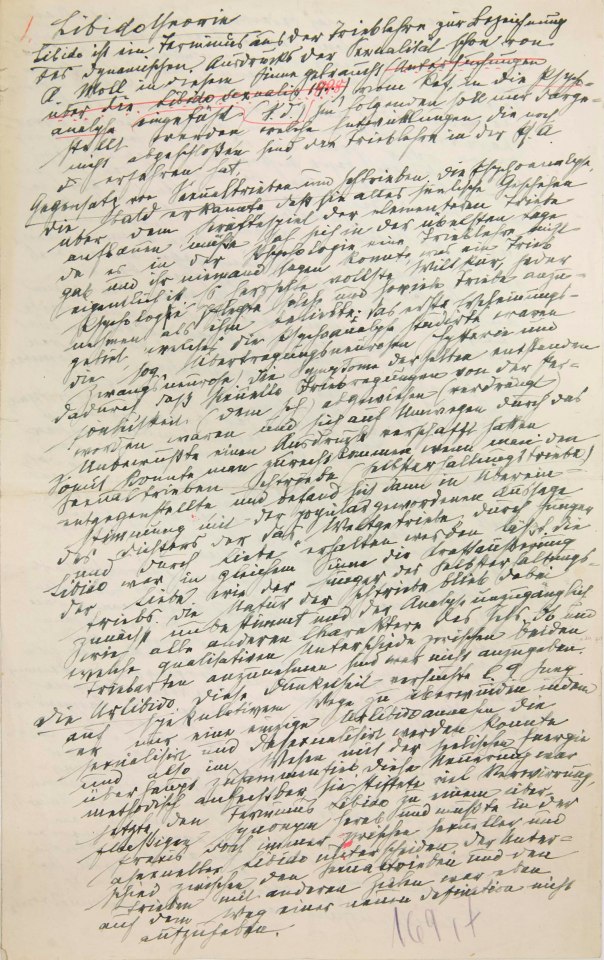 1. Libidotheorie
Libido ist ein Terminus aus der Trieblehre zur Bezeichnung
des dynamischen Ausdrucks der Sexualität schon von
A. Moll in diesem Sinne gebraucht Untersuchungen
über die Libido sexualis 1898 vom Ref. in die Psych-
analyse eingeführt (S. d.) Im folgenden soll nur darge-
stellt werden welche Entwicklungen, die noch
nicht abgeschloßen sind, die Trieblehre in der Ps. A.
erfahren hat.
Gegensatz von Sexualtrieben und Ichtrieben. Die Psychoanalyse,
die bald erkannte daß sie alles seelische Geschehen
über dem Kräftespiel der elementaren Triebe
aufbauen müße sah sich in der übelsten Lage
da es in der Psychologie eine Trieblehre nicht
gab und ihr niemand sagen konnte was ein Trieb
eigentlich ist. Es herrschte vollste Willkür, jeder
Psychologe pflegte solche und soviele Triebe anzu-
nehmen als ihm beliebte. Das erste Erscheinungs-
gebiet welches die Psychoanalyse studirte waren
die sog. Übertragungsneurosen (Hysterie und
Zwangsneurose) Die Symptome derselben entstanden
dadurch daß sexuelle Triebregungen von der Per-
sönlichkeit (dem Ich) abgewiesen (verdrängt)
worden waren und sich auf Umwegen durch das
Unbewußte einen Ausdruck verschafft hatten
Somit konnte man zurecht kommen wenn man den
Sexualtrieben Ichtriebe (Selbsterhaltungstriebe)
entgegenstellte und befand sich dann in Überein-
stimmung mit der populär gewordenen Aussage
des Dichters der das Weltgetriebe „durch Hunger
und durch Liebe“ erhalten werden läßt. Die
Libido war in gleichem Sinne die Kraftäußerung
der Liebe, wie der Hunger des Selbsterhaltungs-
triebs. Die Natur der Ichtriebe blieb dabei
zunächst unbestimmt und der Analyse unzugänglich
wie alle anderen Charaktere des Ichs. Ob und
welche qualitativen Unterschiede zwischen beiden
Triebarten anzunehmen sind war nicht anzugeben.
Die Urlibido. Diese Dunkelheit versuchte C. G. Jung
auf spekulativem Wege zu überwinden indem
er nur eine einzige Urlibido annahm die
sexualisirt und desexualisirt werden konnte
und also im Wesen mit der seelischen Energie
überhaupt zusammenfiel. Diese Neuerung war
methodisch anfechtbar, sie stiftete viel Verwirrung,
setzte den Terminus Libido zu einem über-
flüßigen Synonym herab und mußte in der
Praxis doch immer zwischen sexueller und
asexueller Libido unterscheiden. Der Unter-
schied zwischen den Sexualtrieben und den
Trieben mit anderen Zielen war eben
auf dem Weg einer neuen Definition nicht
aufzuheben.